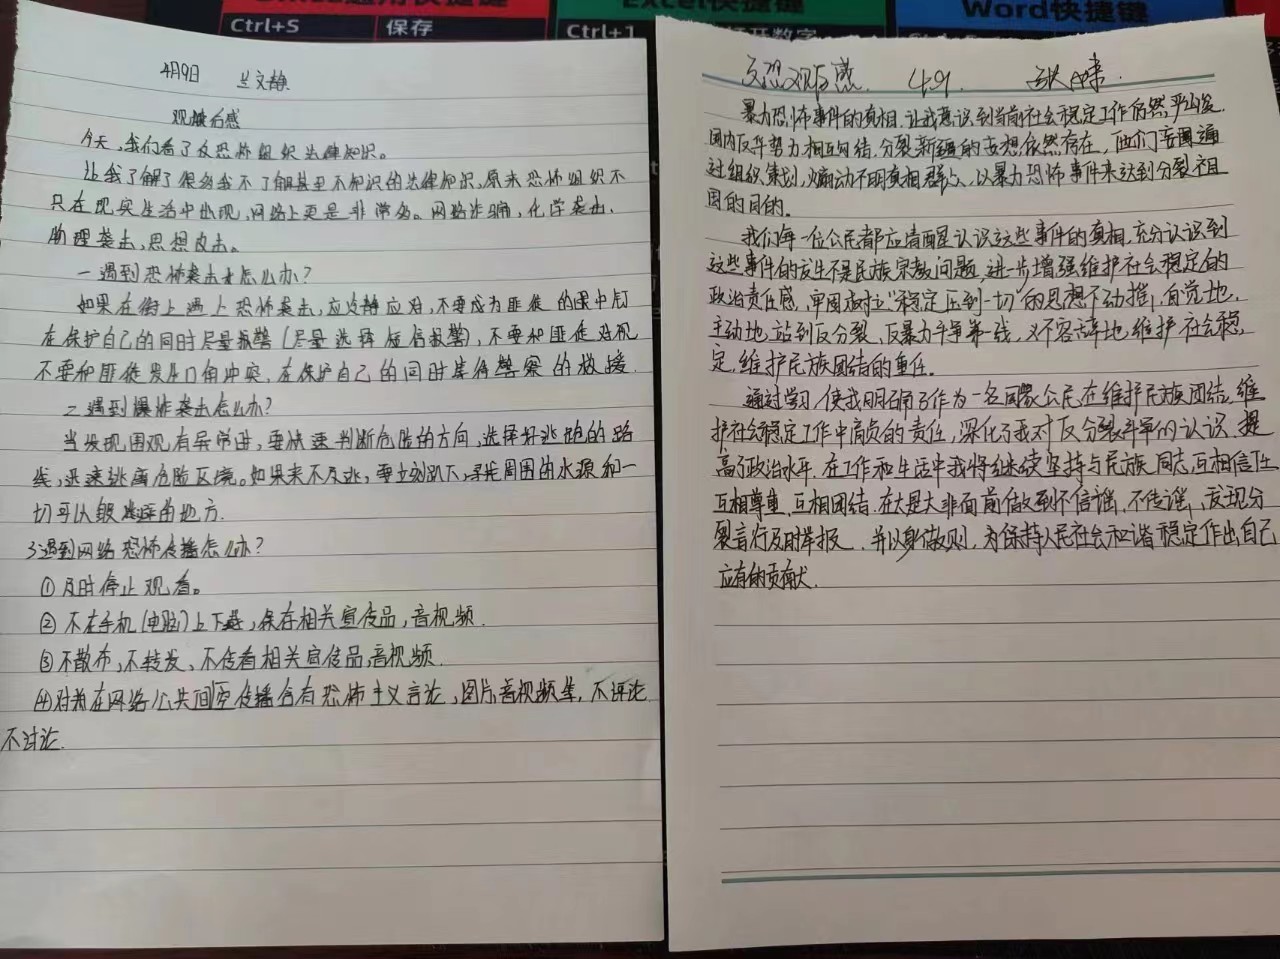 Ctrl+S 保存
Ctrl+1
Excel快捷键
Word快捷键
4月9日 兰文静
观后感
今天,我们看了反恐怖组织法律知识。
让我了解了很多我不了解甚至不知识的法律知识,原来恐怖组织不
只在现实生活中出现,网络上更是非常多。网络诈骗,化学袭击,
物理袭击,思想攻击。
一遇到恐怖袭击怎么办?
如果在街上遇上恐怖袭击,应冷静应对,不要成为匪徒的眼中钉
在保护自己的同时尽量报警(尽量选择短信报警),不要和匪徒对视
不要和匪徒发生口角冲突,在保护自己的同时等待警察的救援.
二遇到爆炸袭击怎么办?
当发现围观有异常时,要快速判断危险的方向,选择好逃跑的路
线,迅速逃离危险区境。如果来不及逃,要立刻趴下,寻找周围的水源和一
切可以躲的地方.
3遇到网络恐怖传播怎么办?
①及时停止观看。
②不在手机(电脑)上下载,保存相关宣传品,音视频.
③不散布,不转发、不传看相关宣传品,音视频.
④对于在网络公共间传播含有恐怖主义言论,图片,音视频等,不评论
不讨论.
反恐观后感. 4.9.
暴力恐怖事件的真相,让我意识到当前社会稳定工作仍然严峻.
国内反华势力相互勾结,分裂新疆的妄想依然存在,他们妄图通
过组织策划,煽动不明真相群众,以暴力恐怖事件来达到分裂祖
国的目的.
我们每一位公民都应清醒认识这些事件的真相,充分认识到
这些事件的发生不是民族宗教问题,进一步增强维护社会稳定的
政治责任感,牢固树立"稳定压到一切"的思想不动摇,自觉地、
主动地站到反分裂、反暴力斗争第一线,义不容辞地维护社会稳
定,维护民族团结的重任.
通过学习,使我明确了作为一名国家公民在维护民族团结,维
护社会稳定工作中肩负的责任,深化了我对反分裂斗争的认识,提
高了政治水平,在工作和生活中我将继续坚持与民族同志互相信任
互相尊重,互相团结,在大是大非面前做到不信谣、不传谣、发现分
裂言行及时举报,并以身做则,为保持人民社会和谐稳定作出自己
应有的贡献.